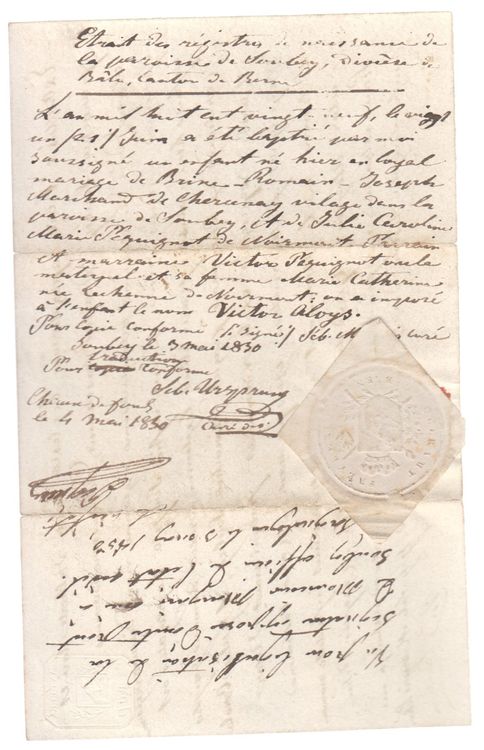 Extrait des régistres de naissance de
la paroisse de Soubey, diocèse de
Bâle, Canton de Berne
L'an mil huit cent vingt-neuf, le vingt
un /21/ Juin a été baptisé par moi
soussigné un enfant né hier en loyal
mariage de Brine Romain Joseph
Marchand de village dans la
paroisse de Soubey, et de Julie Caroline
Marie Péquignot de Noirmont. Parrain
et marraine Victor Péquignot oncle
maternel et sa femme Marie Catherine
née de Noirmont; on a imposé
à l'enfant le nom Victor Aloys.
Pour copie conforme /signé/ Séb. curé
Soubey le 3 mai 1830
Pour traduction conforme
Séb. Ursprung
Chaux de fonds
le 4 Mai 1830
Curé
Vu pour légalisation de la
signature apposée d'autre part
de Monsieur curé à
Soubey officier de l'état civil.
le 3